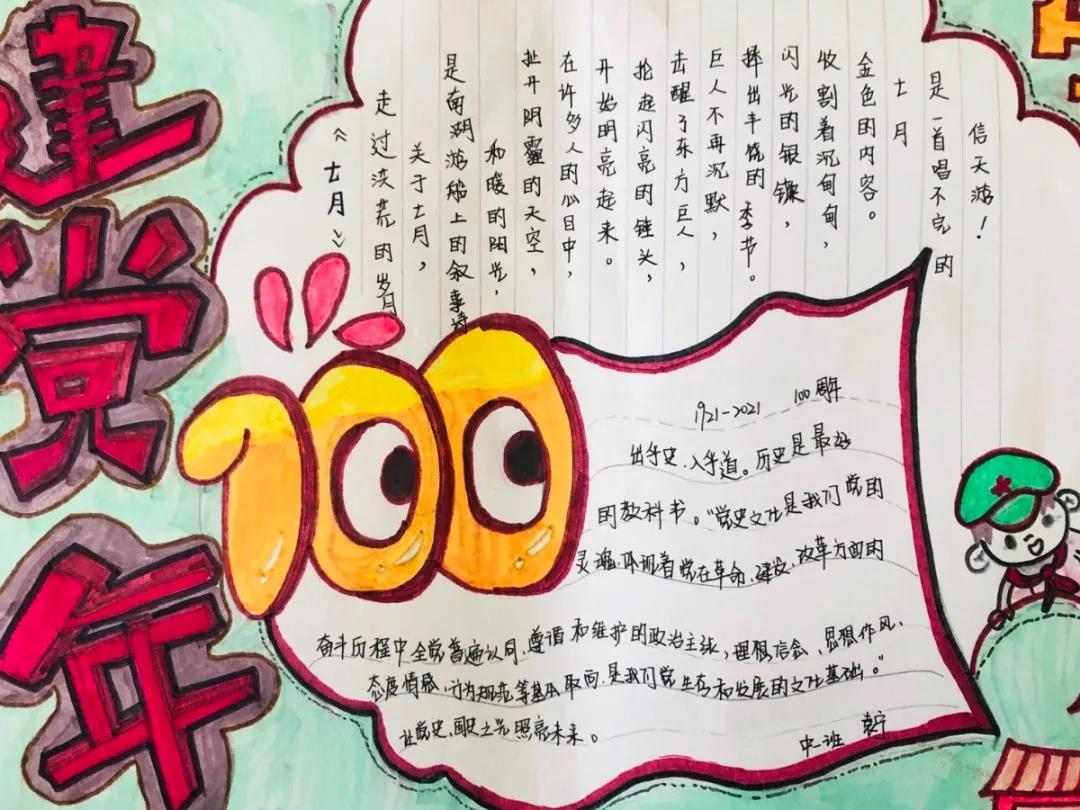 建党年
《七月》
走过洪荒的岁月
关于七月,
是南湖游船上的叙事诗
和暖的阳光,
扯开阴霾的天空,
在许多人的心目中,
开始明亮起来。
抡起闪亮的锤头,
击醒了东方巨人,
巨人不再沉默,
捧出丰饶的季节。
闪光的银镰,
收割着沉甸甸,
金色的内容。
七月
是一首唱不完的
信天游!
100
1921-2021 100周年
出乎史、入乎道。历史是最好
的教科书。“党史文化是我们党的
灵魂,体现着党在革命、建设、改革方面的
奋斗历程中全党普遍认同、遵循和维护的政治主张,理想信念、思想作风、
态度情感、行为规范等基本取向,是我们党生存和发展的文化基础。”
让党史、国史之光照亮未来。
班